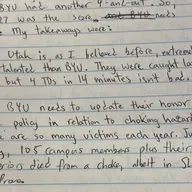 BYU had another 4-and-out. So,
27 was the score. needs
My takeaways were:
Utah is, as I believed before, extreme
talented than BYU. They were caught lo
but 4 TDs in 14 minutes isn't bad.
BYU needs to update their honor
policy in relation to choking hazard
are so many victims each year. In
105 campus members plus their
died from a choke, albeit in SL
Provo